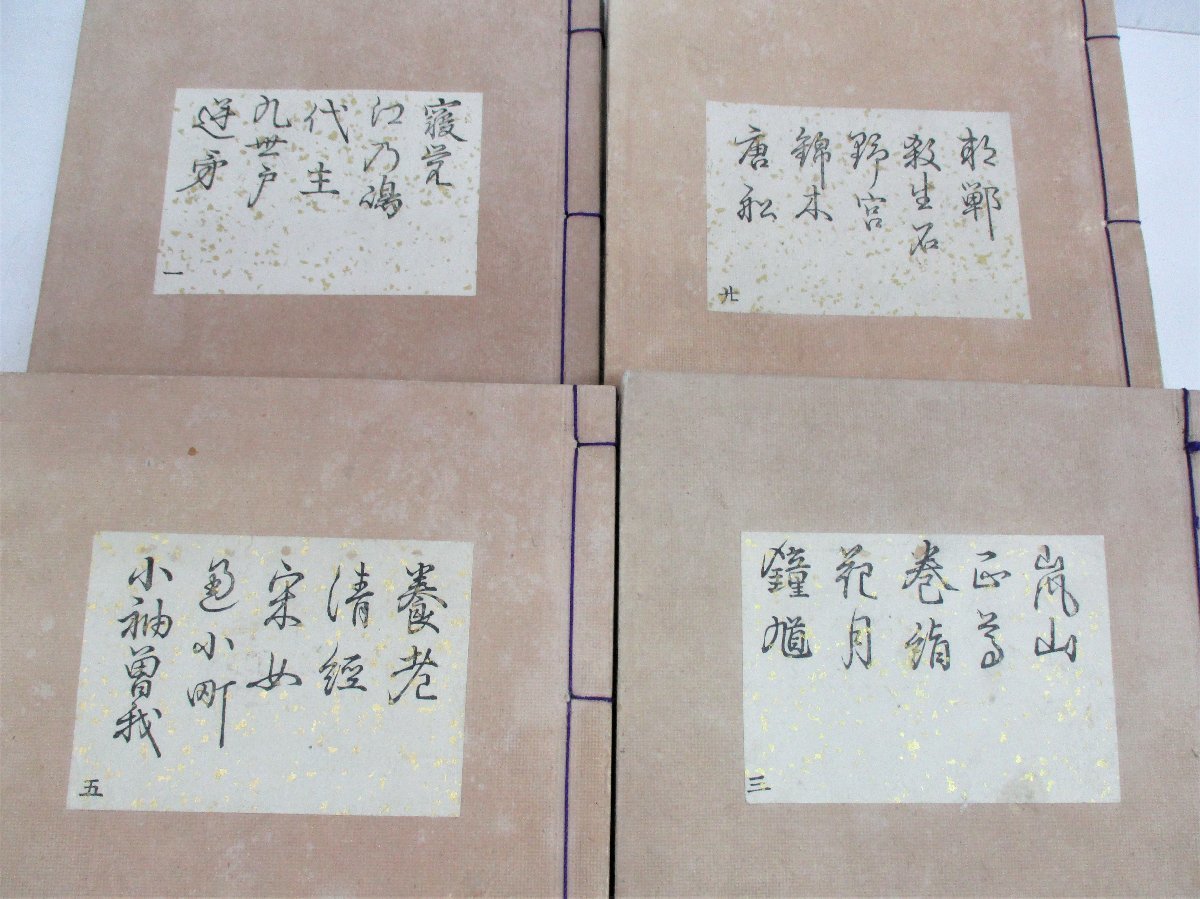 寝覚
江乃嶋
代主
九世戸
逆矛
一
邯鄲
殺生石
野宮
錦木
唐船
廿
養老
清經
采女
通小町
小袖曽我
五
嵐山
正尊
巻絹
花月
鐘馗
三